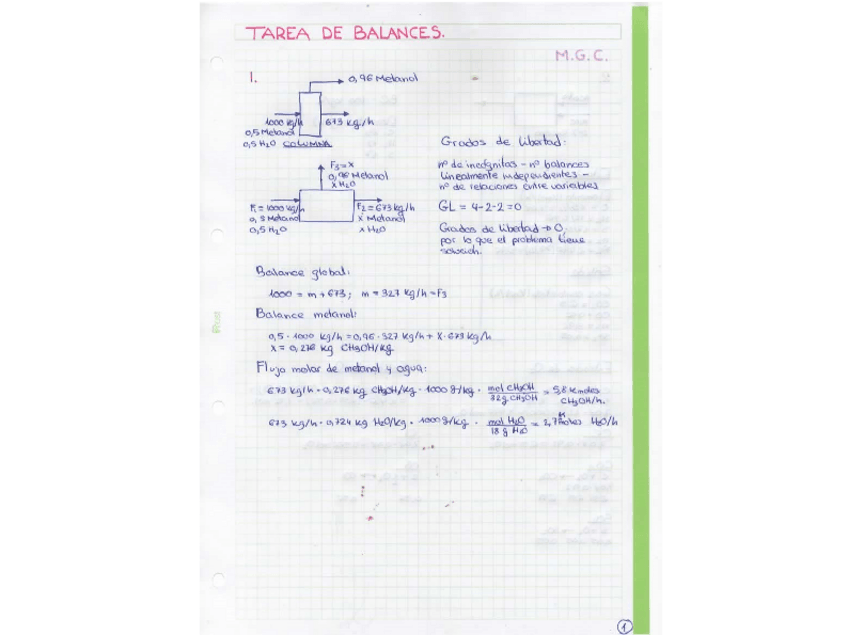 TAREA DE BALANCES.
M.G.C.
1.
0,96 Metanol
1000 kg/h
673 kg/h
0,5 Metanol
0,5 H2O COLUMNA
F3=x
0,96 Metanol
x H2O
F1=1000 kg/h
0,5 Metanol
0,5 H2O
F2=673 kg/h
x Metanol
x H2O
Grados de libertad:
nº de incógnitas - nº balances
linealmente independientes -
nº de relaciones entre variables
GL = 4-2-2=0
Grados de libertad → 0,
por lo que el problema tiene
solución.
Balance global:
1000 = m+673; m=327 kg/h=F3
Balance metanol:
0,5 · 1000 kg/h = 0,96 · 327 kg/h + X · 673 kg/h
X = 0,276 kg CH3OH/kg.
Flujo molar de metanol y agua:
673 kg/h · 0,276 kg CH3OH/kg · 1000 g/kg · mol CH3OH / 32g CH3OH = 5,8 kmoles CH3OH/h.
673 kg/h · 0,724 kg H2O/kg · 1000 g/kg · mol H2O / 18 g H2O = 2,7 kmoles H2O/h
1